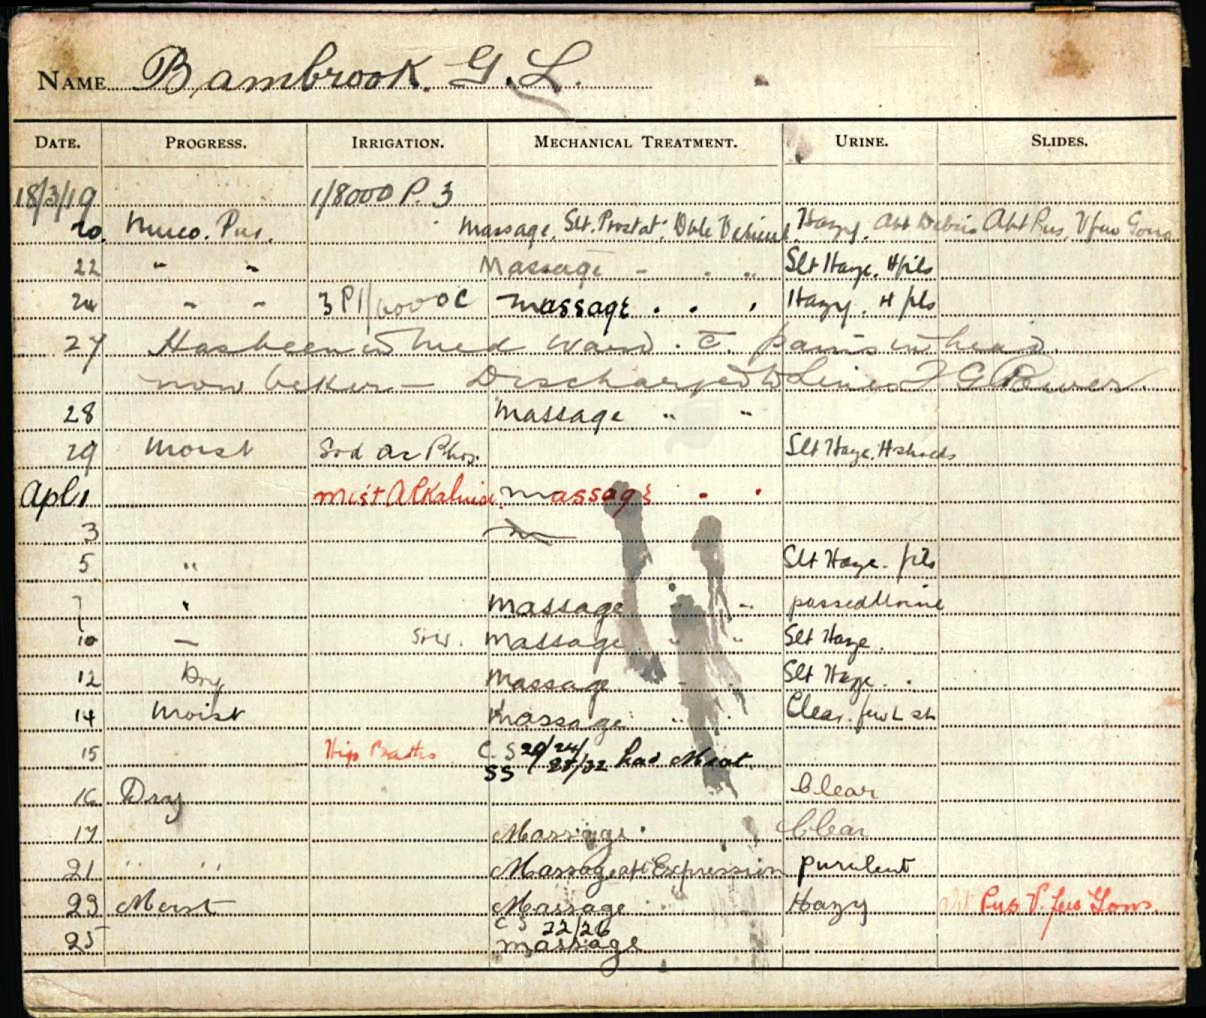 NAME Bambrook. G. L.
DATE. PROGRESS. IRRIGATION. MECHANICAL TREATMENT. URINE. SLIDES.
18/3/19 1/8000 P. 3
20. Muco. Pus. Massage. Slt. Prostat: Dble Vesicul. Hazy. Abt Debris Abt Pus, V few Gono
22 " " Massage - . " Slt Haze. H fils
24 " " 3 P 1/6000 C Massage . . . Hazy. H fls
27 Has been in Med Ward. c. pains in head
now better - Discharged to Lines
28 Massage " "
29 Moist Sod ac Phos. Slt Haze. H shreds
Apl 1 Mist Alkaline. Massage . .
3
5 " Slt Haze. fils
7 " Massage " passed Urine
10 - Massage " " Slt Haze.
12 Dry Massage Slt Haze.
14 Moist Massage " Clear. few L sh
15 Hip Baths C.S 20/24/
SS 28/32 had Meat.
16 Dry Clear
17 Massage Clear
21 " " Massage aft Expression purulent
23 Moist Massage Hazy Abt Pus V. few Gono.
C S 22/26
25 Massage